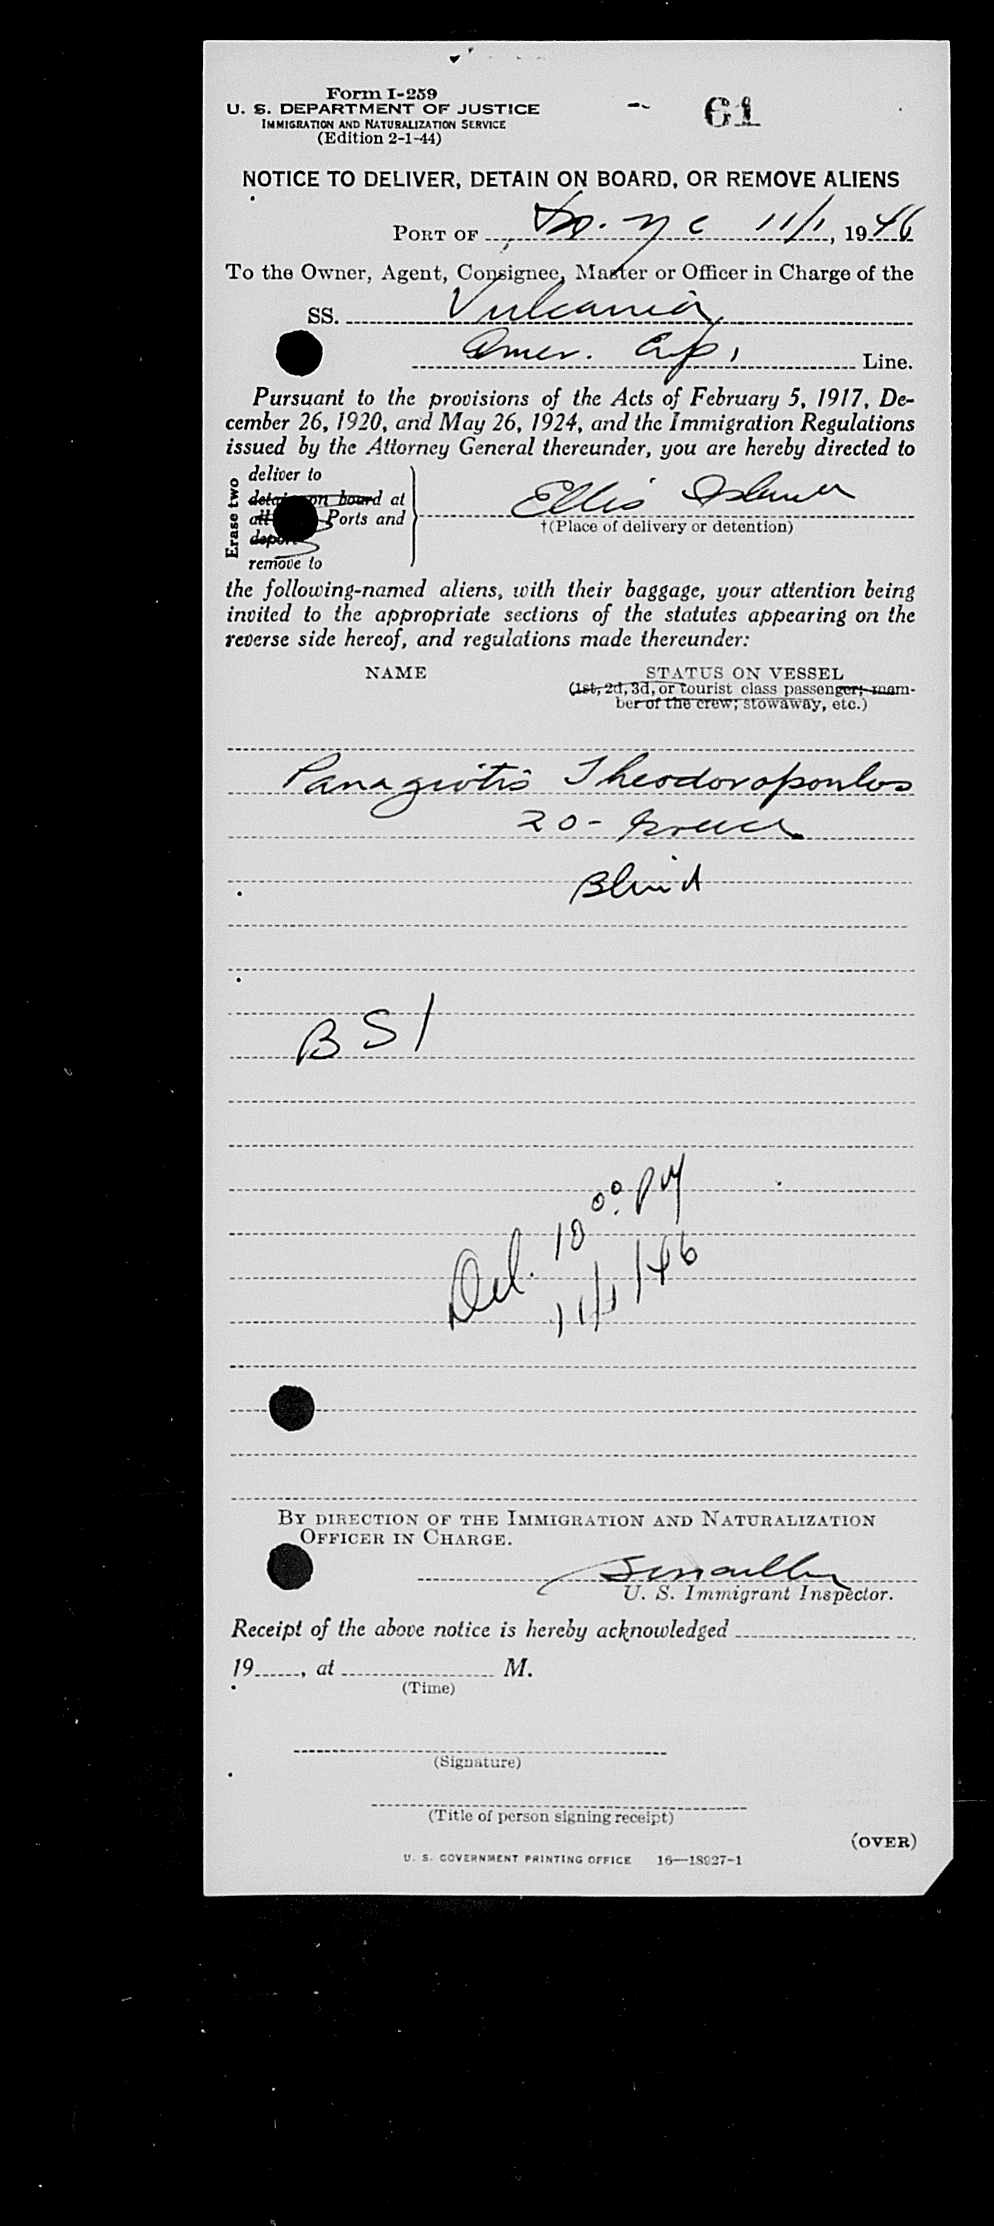 Form I-259
U. S. DEPARTMENT OF JUSTICE
IMMIGRATION AND NATURALIZATION SERVICE
(Edition 2-1-44)
61
NOTICE TO DELIVER, DETAIN ON BOARD, OR REMOVE ALIENS
PORT OF N Y C 11/1, 1946
To the Owner, Agent, Consignee, Master or Officer in Charge of the
SS. Vulcania
Amer. Exp. Line.
Pursuant to the provisions of the Acts of February 5, 1917, De-
cember 26, 1920, and May 26, 1924, and the Immigration Regulations
issued by the Attorney General thereunder, you are hereby directed to
Erase two
deliver to
detain on board at
all Ports and
deport
remove to
Ellis Island
†(Place of delivery or detention)
the following-named aliens, with their baggage, your attention being
invited to the appropriate sections of the statutes appearing on the
reverse side hereof, and regulations made thereunder:
NAME STATUS ON VESSEL
(1st, 2d, 3d, or tourist class passenger; mem-
ber of the crew; stowaway, etc.)
Panagiotis Theodoropoulos
20 - Greece
Blind
BSI
Del. 10 00 PM
11/1/46
BY DIRECTION OF THE IMMIGRATION AND NATURALIZATION
OFFICER IN CHARGE.
U. S. Immigrant Inspector.
Receipt of the above notice is hereby acknowledged
19 , at M.
(Time)
(Signature)
(Title of person signing receipt)
(OVER)
U. S. GOVERNMENT PRINTING OFFICE 16—18927-1